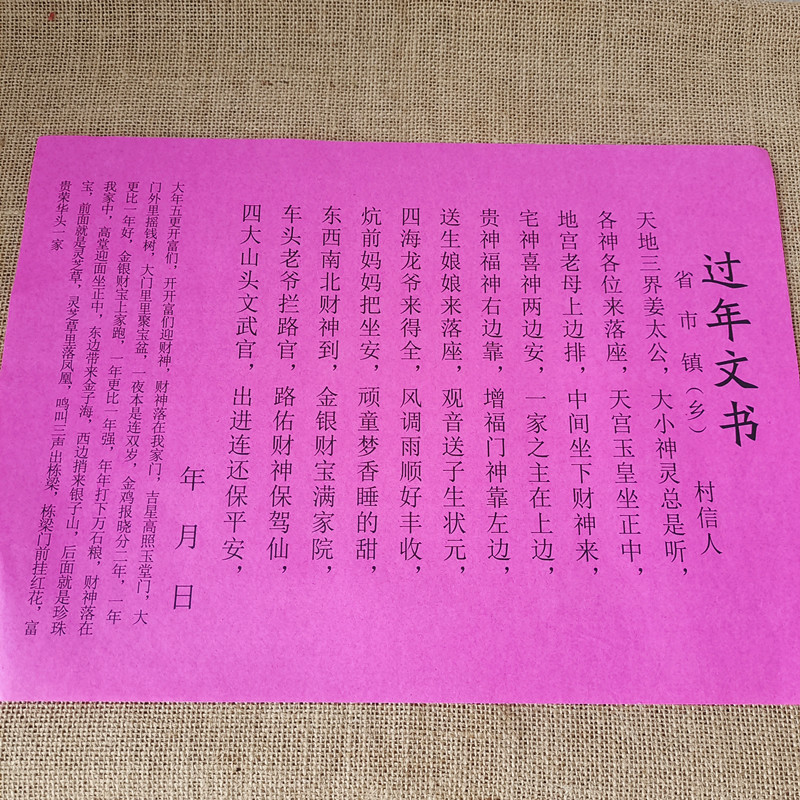 过年文书
省 市 镇（乡） 村信人
天地三界姜太公，大小神灵总是听，
各神各位来落座，天宫玉皇坐正中，
地宫老母上边排，中间坐下财神来，
宅神喜神两边安，一家之主在上边，
贵神福神右边靠，增福门神靠左边，
送生娘娘来落座，观音送子生状元，
四海龙爷来得全，风调雨顺好丰收，
炕前妈妈把坐安，顽童梦香睡的甜，
东西南北财神到，金银财宝满家院，
车头老爷拦路官，路佑财神保驾仙，
四大山头文武官，出进连还保平安，
年 月 日
大年五更开富们，开开富们迎财神，财神落在我家门，吉星高照玉堂门，大
门外里摇钱树，大门里里聚宝盆，一夜本是连双岁，金鸡报晓分二年，一年
更比一年好，金银财宝上家跑，一年更比一年强，年年打下万石粮，财神落在
我家中，高堂迎面坐正中，东边带来金子海，西边捎来银子山，后面就是珍珠
宝，前面就是灵芝草，灵芝草里落凤凰，鸣叫三声出栋梁，栋梁门前挂红花，富
贵荣华头一家